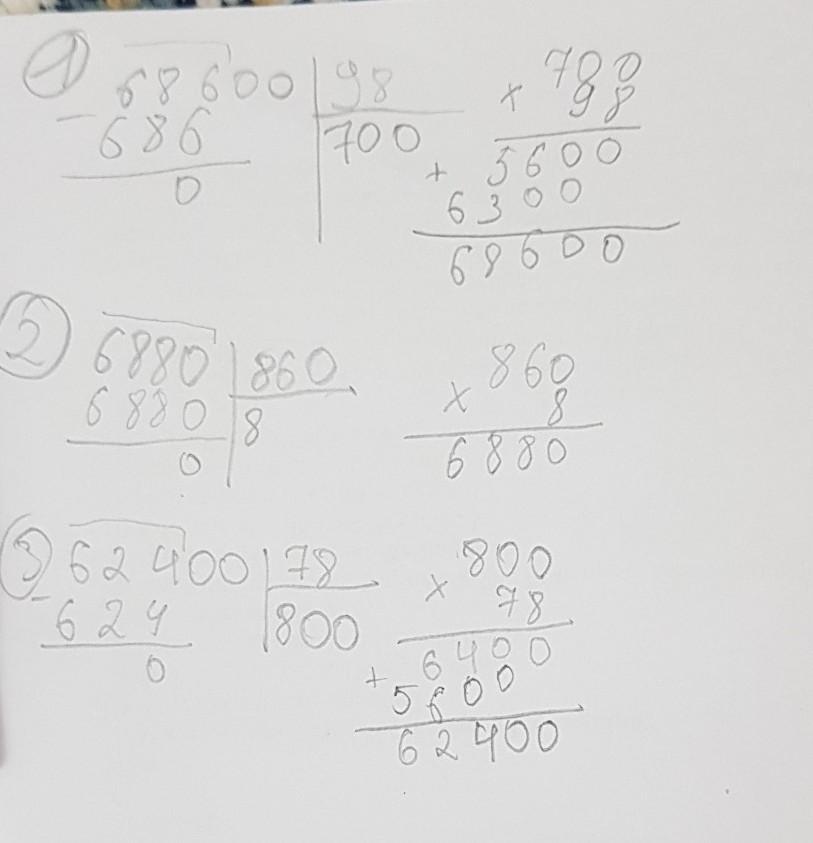 1) 68600 | 98 700
- 686 | 700 × 98
0 5600
+ 6300
68600
2) 6880 | 860 860
6880 | 8 × 8
0 6880
3) 62400 | 78 800
- 624 | 800 × 78
0 6400
+ 5600
62400